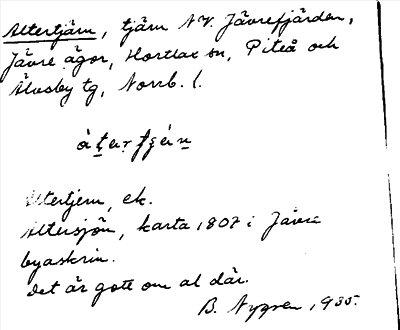 Altertjärn, tjärn NV. Jävrefjärden,
Jävre ägor, Hortlax sn, Piteå och
Älvsby tg, Norrb. l.
Altertjern, ek.
Altersjön, karta 1807 i Jävre
byaskrin.
Det är gott om al där.
B. Nygren, 1935.